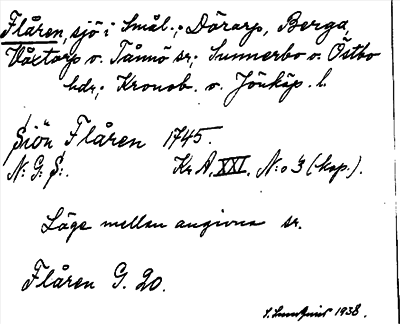 Flåren, sjö i Smål.; Dörarp, Berga,
Våxtorp o. Tånnö sr; Sunnerbo o. Östbo
hdr; Kronob. o. Jönköp. l.
Sjön Flåren 1745.
N: G: S:. Kr A. XXI. N:o 3 (kop.).
Läge mellan angivna sr.
Flåren G. 20.
1938.